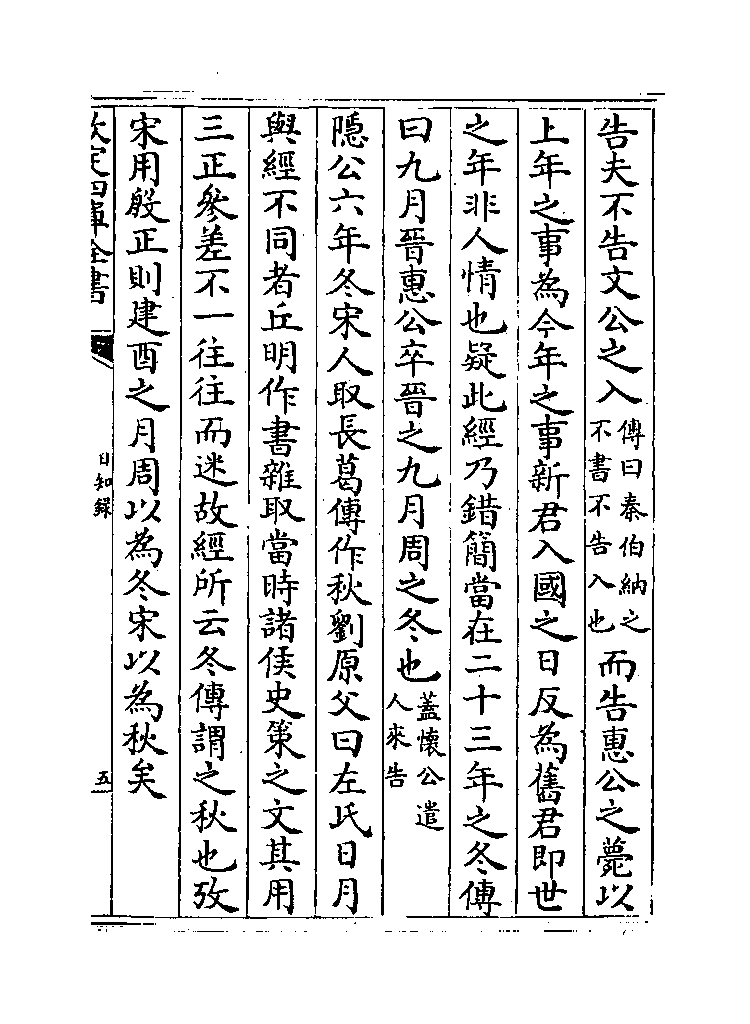 告夫不告文公之入傳曰秦伯納之不書不告入也而告惠公之薨以
上年之事為今年之事新君入國之日反為舊君即世
之年非人情也疑此經乃錯簡當在二十三年之冬傳
曰九月晉惠公卒晉之九月周之冬也蓋懷公遣人來告
隱公六年冬宋人取長葛傳作秋劉原父曰左氏日月
與經不同者丘明作書雜取當時諸侯史策之文其用
三正參差不一往往而迷故經所云冬傳謂之秋也攷
宋用殷正則建酉之月周以為冬宋以為秋矣
欽定四庫全書
日知錄
五